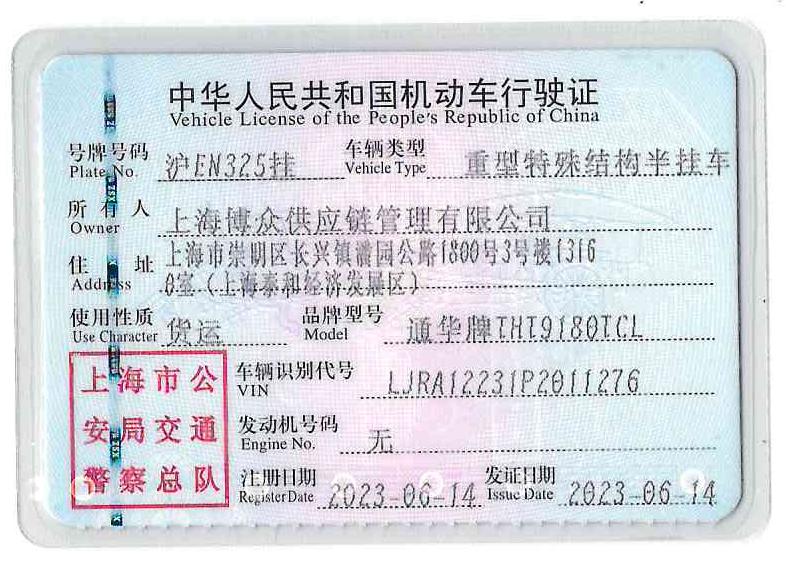 中华人民共和国机动车行驶证
Vehicle License of the People's Republic of China
号牌号码 沪EN325挂 车辆类型 重型特殊结构半挂车
Plate No. Vehicle Type
所有人 上海博众供应链管理有限公司
Owner
住址 上海市崇明区长兴镇潘园公路1800号3号楼1316
Address 0室(上海泰和经济发展区)
使用性质 货运 品牌型号 通华牌THT9180TCL
Use Character Model
上海市公 车辆识别代号 LJRA12231P2011276
VIN
安局交通 发动机号码 无
Engine No.
警察总队 注册日期 2023-06-14 发证日期 2023-06-14
Register Date Issue Date